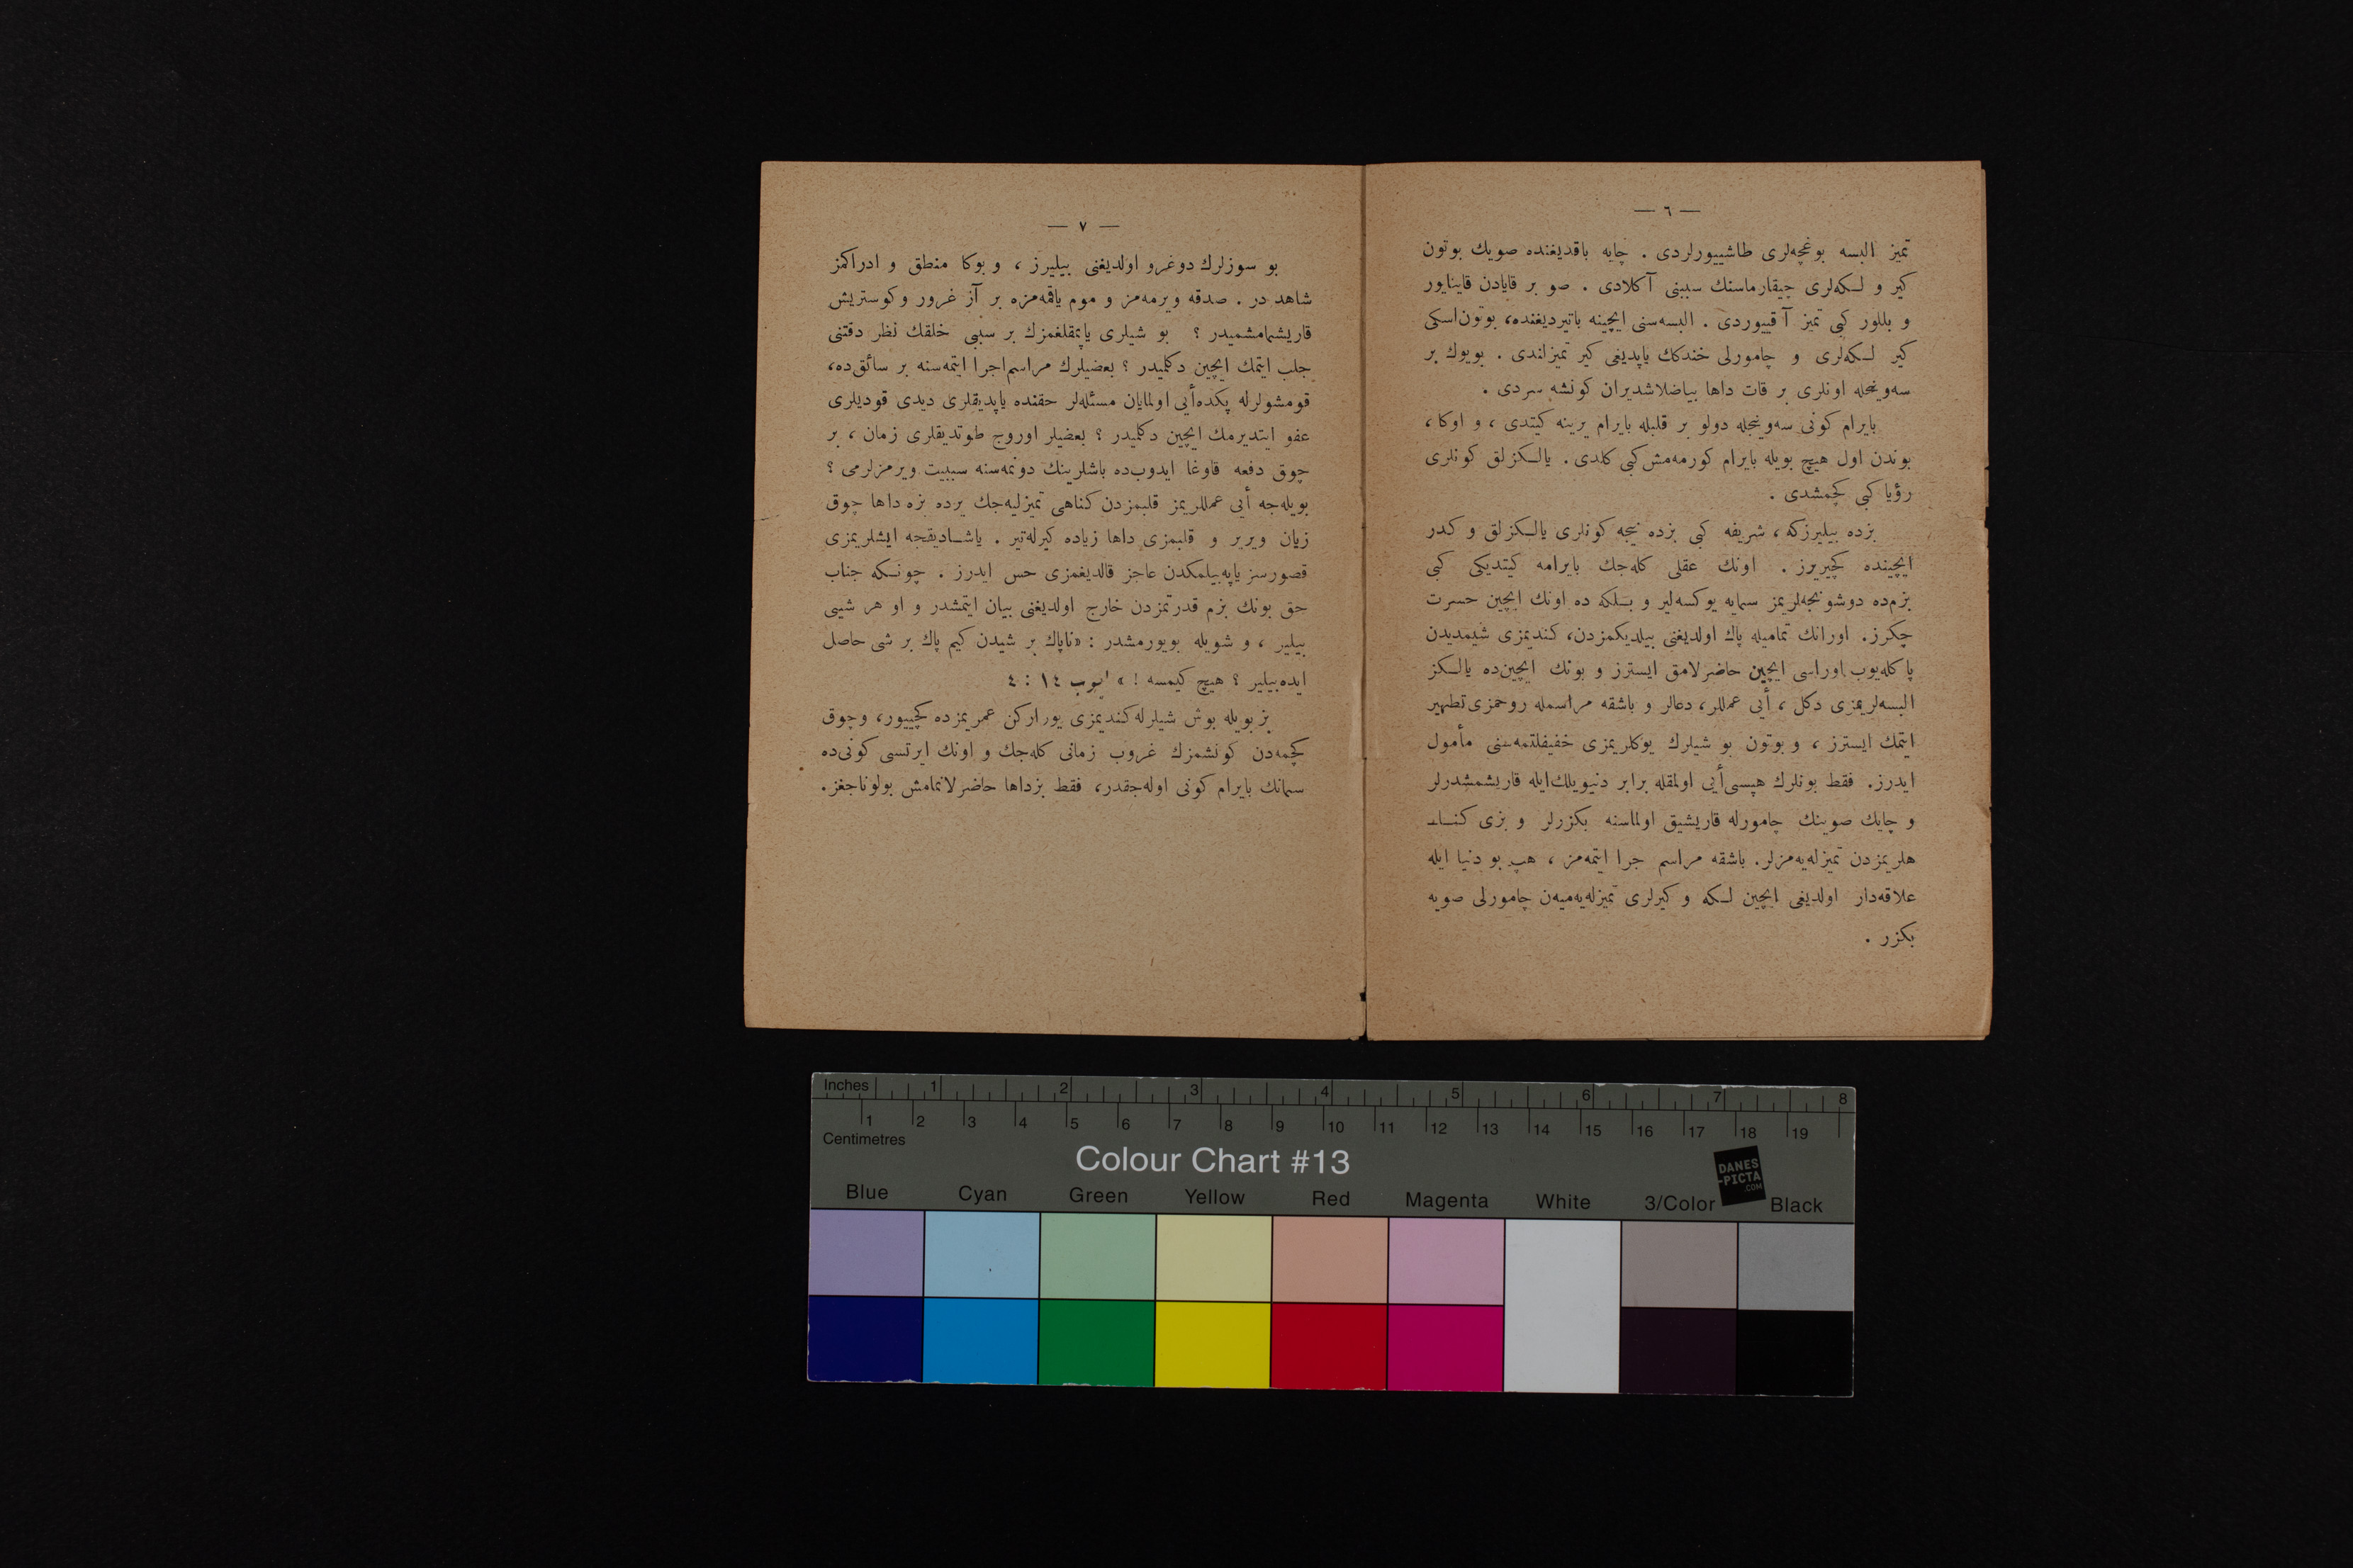 — ٦ —
تميز البسه بوغچه‌لری طاشييورلردی . چايه باقديغنده صويك بوتون
كير و لـكه‌لری چيقارماسنك سببنی آكلادی . صو بر قايادن قاينايور
و بللور كبی تميز آقييوردی . البسه‌سنی ايچينه باتيرديغنده، بوتون اسكی
كير لـكه‌لری و چامورلی خندكك ياپديغی كير تميزلندی . بويوك بر
سه‌وينجله اونلری بر قات داها بياضلاشديران كونشه سردی .
بايرام كونی سه‌وينجله دولو بر قلبله بايرام يرينه كيتدی ، و اوكا ،
بوندن اول هيچ بويله بايرام كورمه‌مش كبی كلدی . يالـكزلق كونلری
رؤيا كبی كچمشدی .
بزده بيليرزكه ، شريفه كبی بزده نيجه كونلری يالـكزلق و كدر
ايچينده كچيريرز . اونك عقلی كله‌جك بايرامه كيتديكی كبی
بزم‌ده دوشونجه‌لريمز سمايه يوكسه‌لير و بـلكه ده اونك ايچين حسرت
چكرز. اورانك تماميله پاك اولديغنی بيلديكمزدن، كنديمزی شيمديدن
پاكله‌يوب اوراسی ايچين حاضرلامق ايسترز و بونك ايچين‌ده يالـكز
البسه‌لريمزی دكل ، أیی عمللر، دعالر و باشقه مراسمله روحمزی تطهير
ايتمك ايسترز ، و بوتون بو شيلرك يوكلريمزی خفيفلتمه‌سنی مأمول
ايدرز. فقط بونلرك هپسی أیی اولمقله برابر دنيويلك ايله قاريشمشدرلر
و چايك صوينك چامورله قاريشيق اولماسنه بكزرلر و بزی كنـاـ
هلريمزدن تميزله‌يه‌مزلر. باشقه مراسم جرا ايتمه‌مز ، هپ بو دنيا ايله
علاقه‌دار اولديغی ايچين لـكه و كيرلری تميزله‌يه‌ميه‌ن چامورلی صويه
بكزر .
— ٧ —
بو سوزلرك دوغرو اولديغنی بيليرز ، و بوكا منطق و ادراكمز
شاهد در . صدقه ويرمه‌مز و موم ياقمه‌مزه بر آز غرور و كوستريش
قاريشمامشميدر ؟ بو شيلری ياپمقلغمزك بر سببی خلقك نظر دقتنی
جلب ايتمك ايچين دكلميدر ؟ بعضيلرك مراسم اجرا ايتمه‌سنه بر سائق‌ده،
قومشولرله پكده أیی اولمايان مسئله‌لر حقنده ياپديقلری ديدی قوديلری
عفو ايتديرمك ايچين دكلميدر ؟ بعضيلر اوروج طوتديقلری زمان ، بر
چوق دفعه قاوغا ايدوب‌ده باشلرينك دونمه‌سنه سببيت ويرمزلرمی ؟
بويله‌جه أیی عمللريمز قلبمزدن كناهی تميزليه‌جك يرده بزه داها چوق
زيان ويرير و قلبمزی داها زياده كيرله‌تير . ياشـاديقجه ايشلريمزی
قصورسز ياپه‌بيلمكدن عاجز قالديغمزی حس ايدرز . چونـكه جناب
حق بونك بزم قدرتمزدن خارج اولديغنی بيان ايتمشدر و او هر شيی
بيلير ، و شويله بويورمشدر : «ناپاك بر شيدن كيم پاك بر شی حاصل
ايده‌بيلير ؟ هيچ كيمسه ! » ايوب ١٤ : ٤
بز بويله بوش شيلرله كنديمزی يوراركن عمريمزده كچييور، وچوق
كچمه‌دن كونشمزك غروب زمانی كله‌جك و اونك ايرتسی كونی‌ده
سمانك بايرام كونی اوله‌جقدر، فقط بزداها حاضرلانمامش بولوناجغز.
Inches 1 2 3 4 5 6 7 8
1 2 3 4 5 6 7 8 9 10 11 12 13 14 15 16 17 18 19
Centimetres
Colour Chart #13
DANES
-PICTA
.COM
Blue Cyan Green Yellow Red Magenta White 3/Color Black